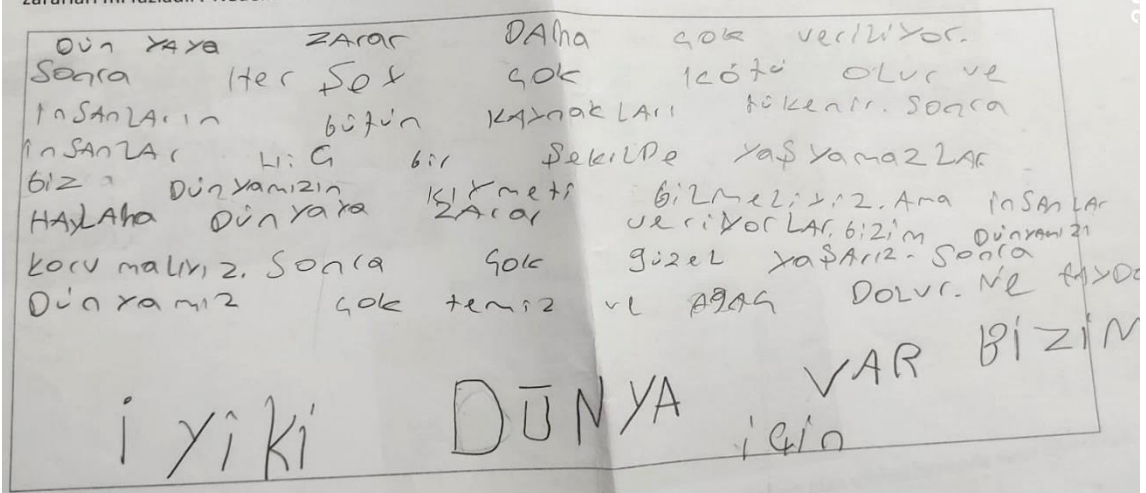 zararları mı fazladır? Neden
Dün yaya zarar DAha çok veriliyor.
Sonra Her Şey çok kötü olur ve
insanların bütün kaynakları tükenir. Sonra
insanlar Hiç bir şekilde yaşyamazlar
biz Dünyamızın kıymeti bilmeliyiz. Ama insanlar
HAYLAha Dünyaya zarar veriyorlar. bizim Dünyamızı
korumalıyız. Sonra çok güzel yaşarız. Sonra
Dünyamız çok temiz ve ağaç Dolur. Ne
iyiki DÜNYA VAR BİZİM
için